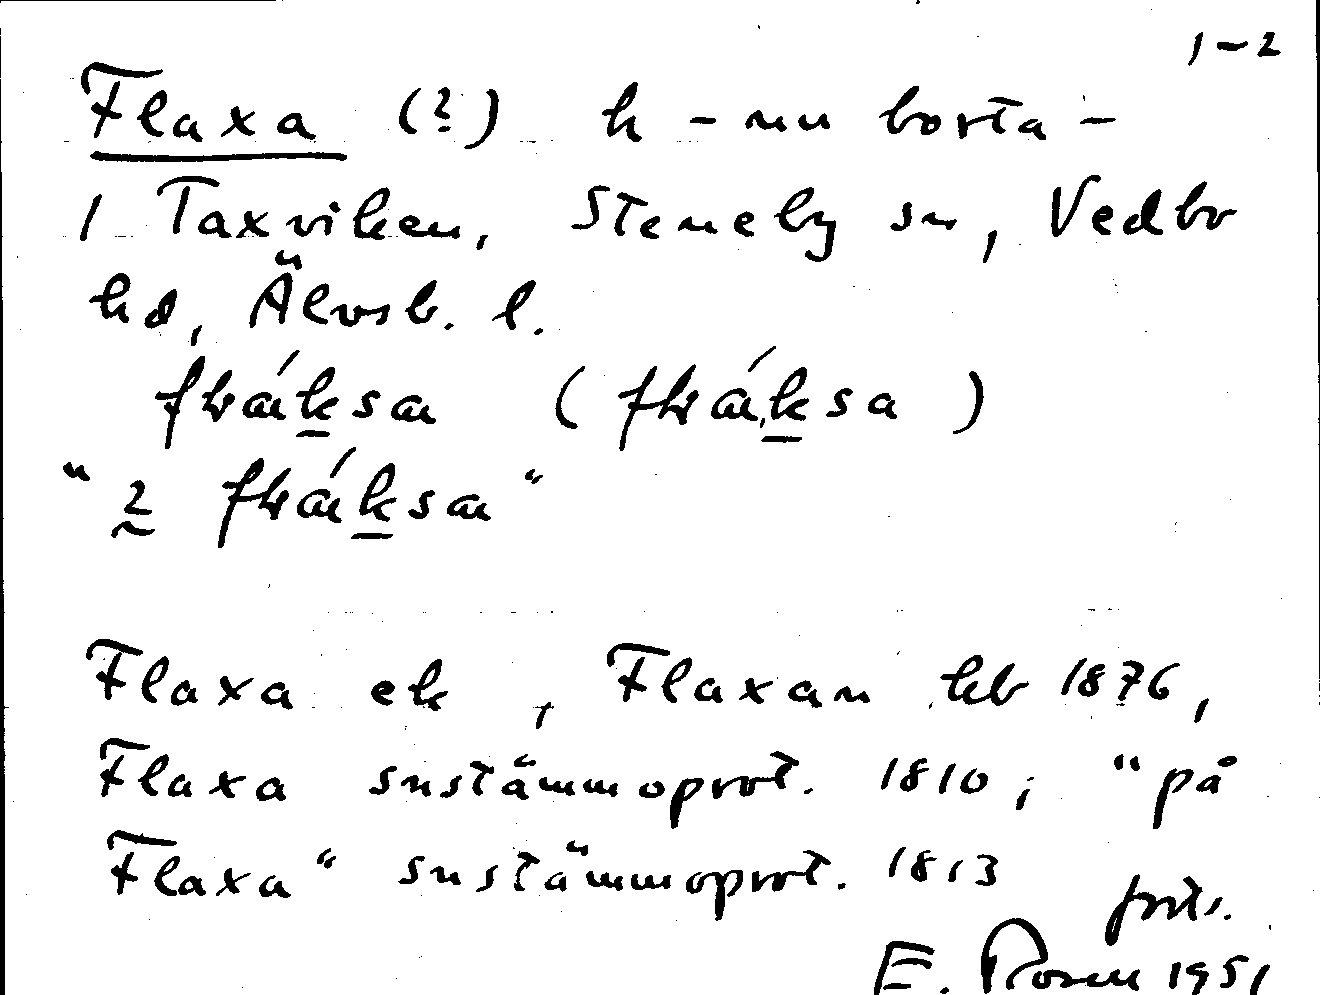 1–2
Flaxa (?) h – nu borta –
/ Taxviken, Steneby sn, Vedbo
hd, Älvsb. l.
fɫváksa (fɫváksa)
"2 fɫváksa"
Flaxa ek, Flaxan hb 1876,
Flaxa snstämmoprot. 1810; "på
Flaxa" snstämmoprot. 1813
forts.
E. Rosen 1951